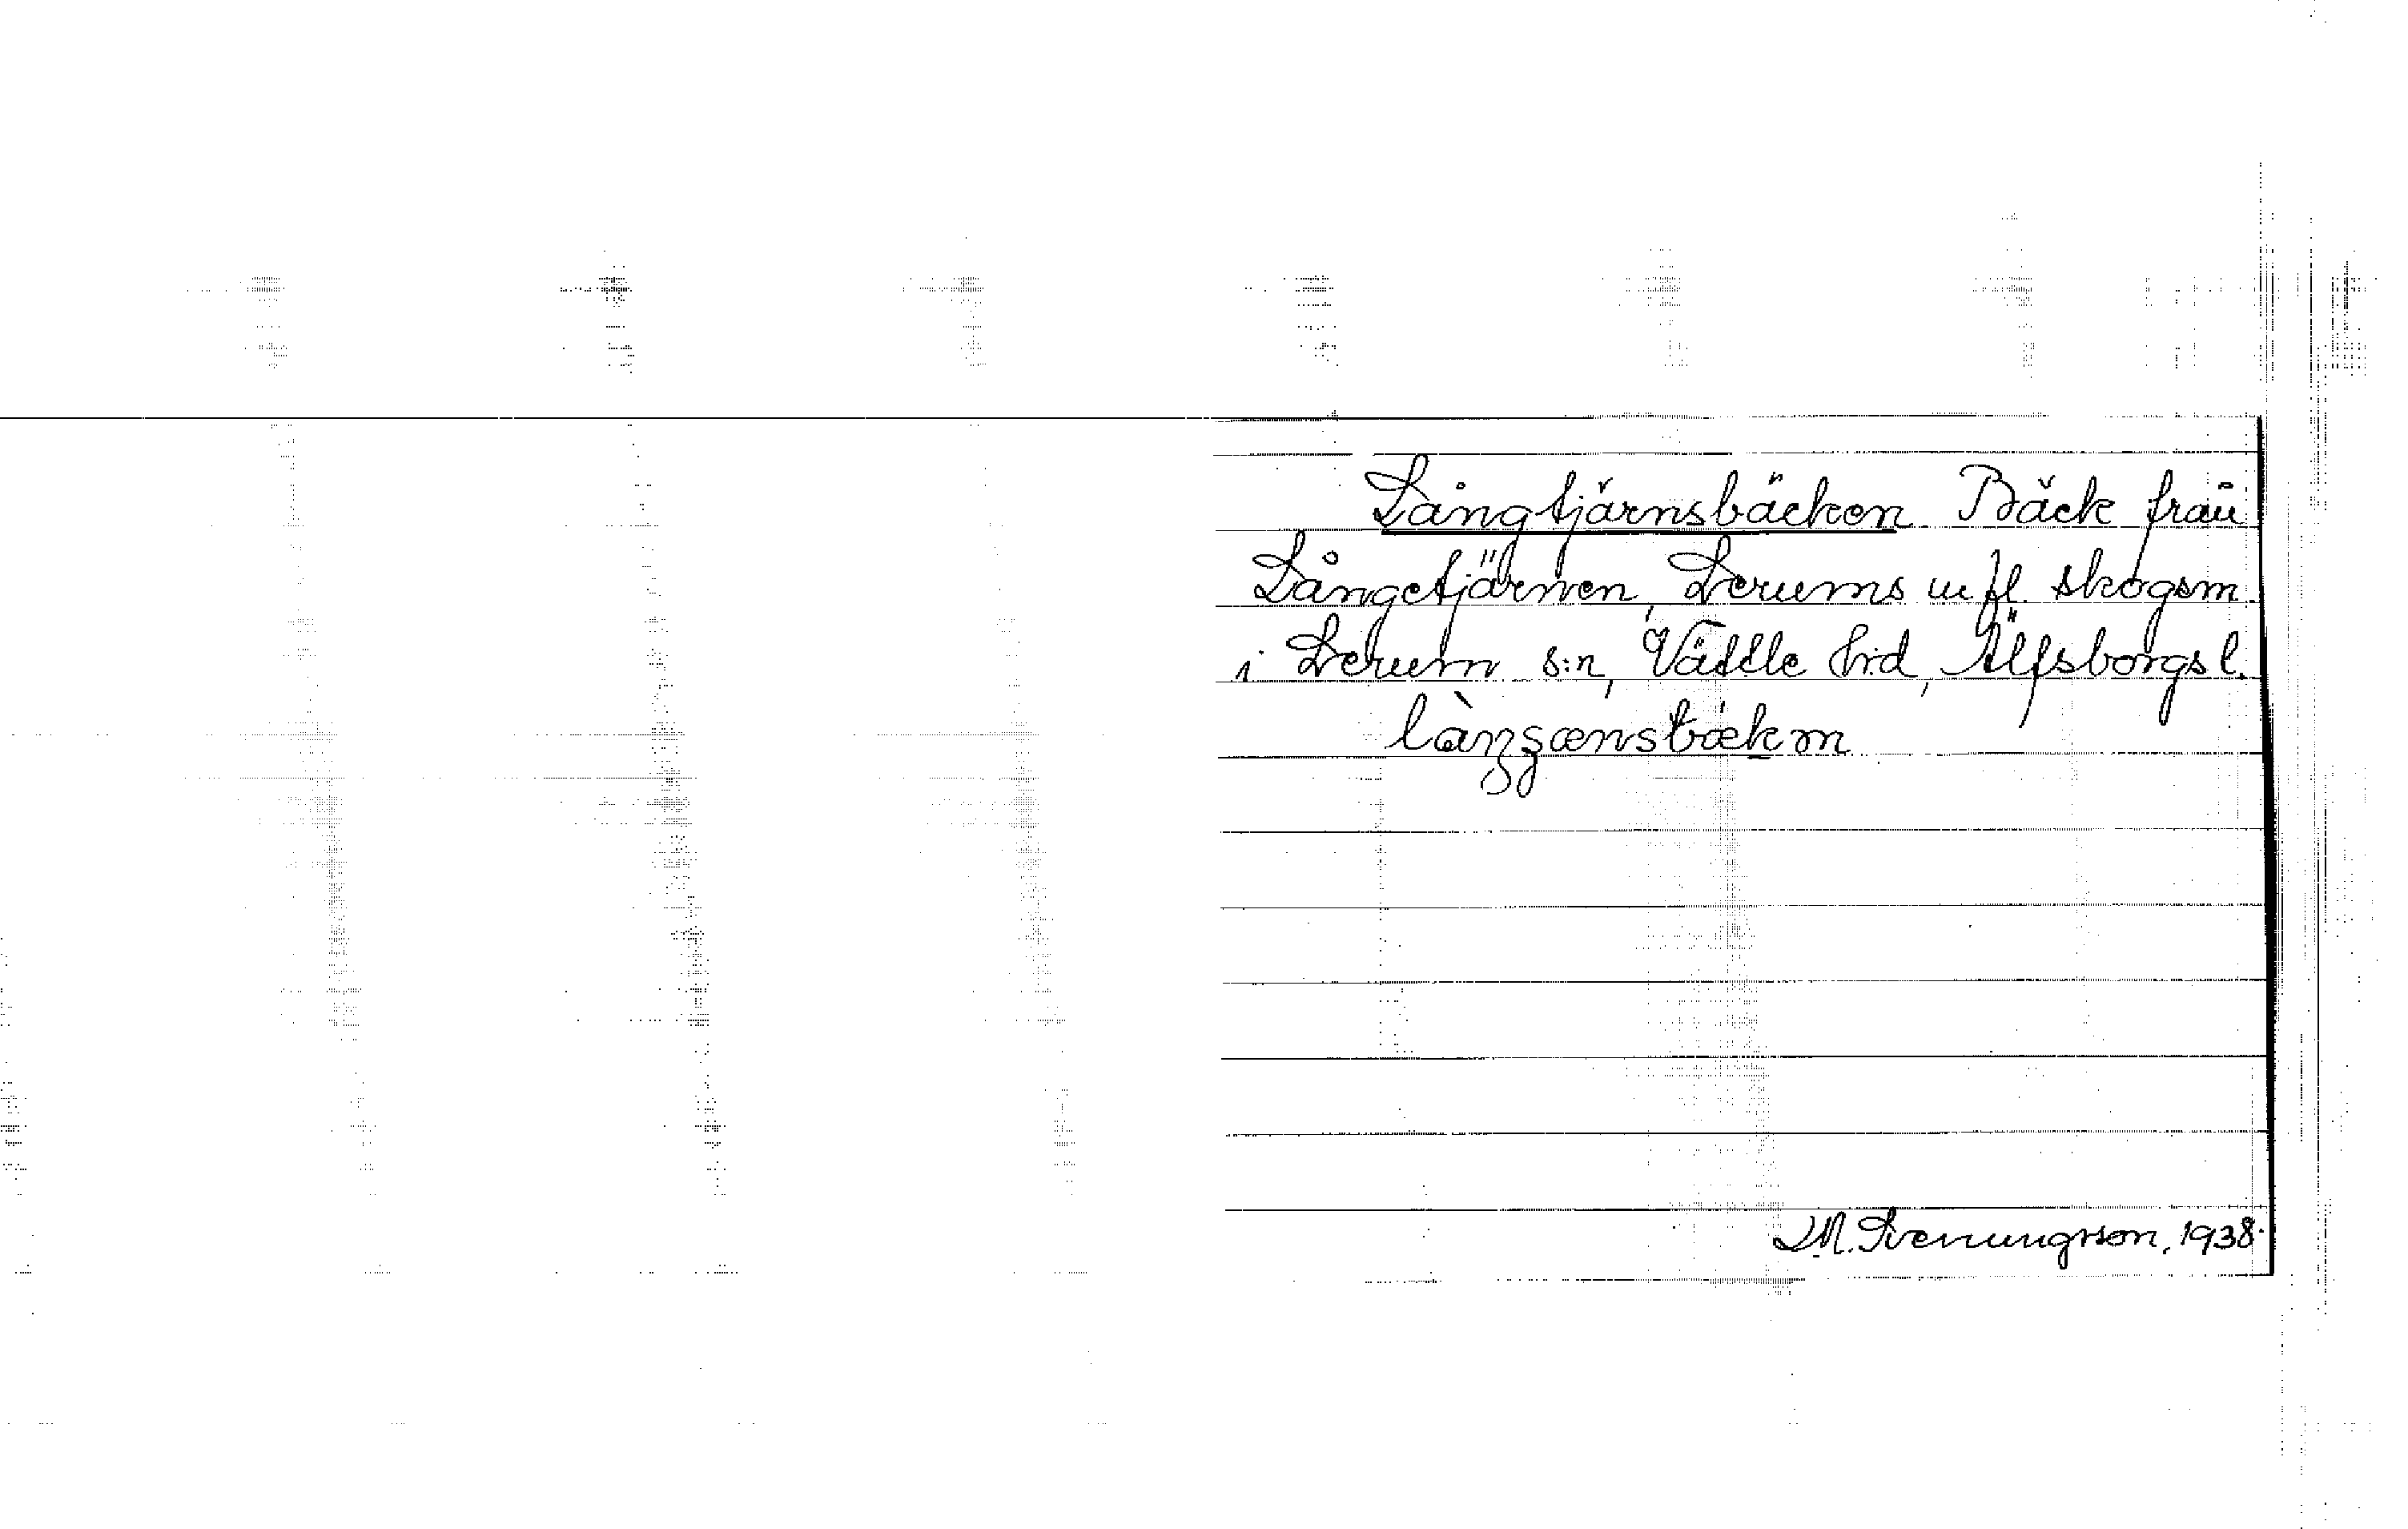 Långtjärnsbäcken Bäck från
Långetjärnen, Lerums m fl. skogsm.
i Lerum s:n, Vättle hrd, Älfsborgs l.
M. Svenungsson, 1938.